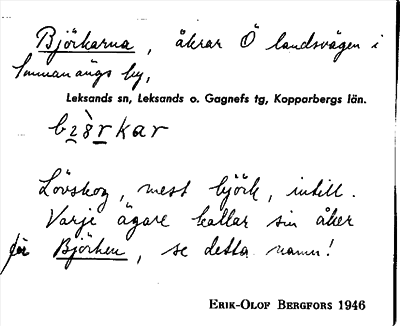 Björkarna, åkrar Ö landsvägen i
Sunnanängs by,
Leksands sn, Leksands o. Gagnefs tg, Kopparbergs län.
Lövskog, mest björk, intill.
Varje ägare kallar sin åker
för Björken, se detta namn!
ERIK-OLOF BERGFORS 1946